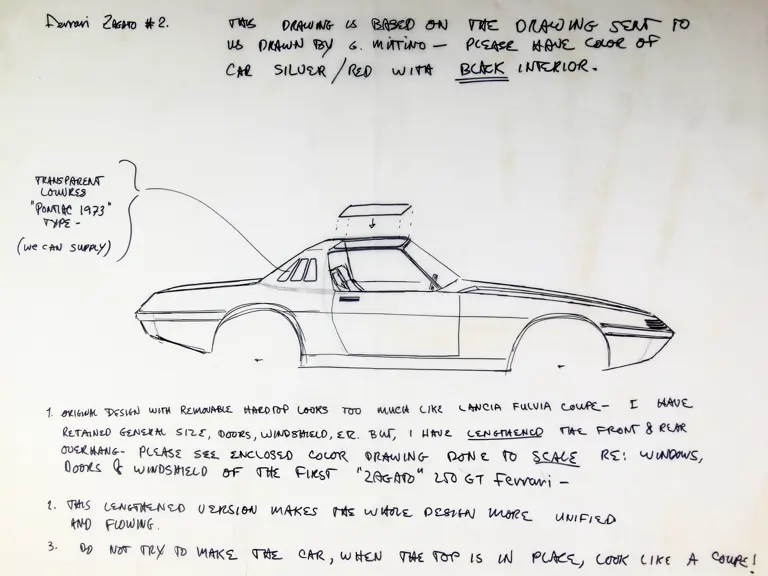 Ferrari ZAGATO #2.
THIS DRAWING IS BASED ON THE DRAWING SENT TO
US DRAWN BY G. MITTINO — PLEASE HAVE COLOR OF
CAR SILVER/RED WITH BLACK INTERIOR.
TRANSPARENT
LOUVRES
"PONTIAC 1973"
TYPE -
(WE CAN SUPPLY)
1. ORIGINAL DESIGN WITH REMOVABLE HARDTOP LOOKS TOO MUCH LIKE LANCIA FULVIA COUPE - I HAVE
RETAINED GENERAL SIZE, DOORS, WINDSHIELD, ETC. BUT, I HAVE LENGTHENED THE FRONT & REAR
OVERHANG - PLEASE SEE ENCLOSED COLOR DRAWING DONE TO SCALE RE: WINDOWS,
DOORS & WINDSHIELD OF THE FIRST "ZAGATO" 250 GT Ferrari -
2. THIS LENGTHENED VERSION MAKES THE WHOLE DESIGN MORE UNIFIED
AND FLOWING.
3. DO NOT TRY TO MAKE THE CAR, WHEN THE TOP IS IN PLACE, LOOK LIKE A COUPE!